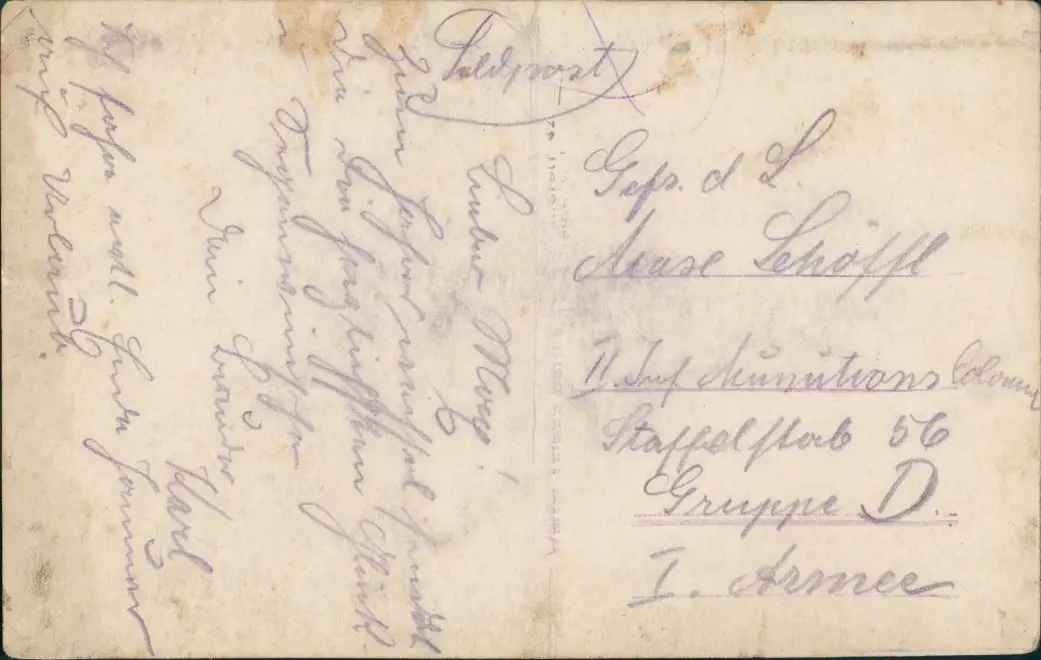 Feldpost
Lieber Max!
Zum Jahreswechsel sendet
Dir die herzlichsten Glück-
u. Segenswünsche
Dein Bruder
Karl
Ich fahre
auf Urlaub.
Gefr. d L.
Schöffl
II. Inf Munitions Colonne
Staffelstab 56
Gruppe D.
I. Armee